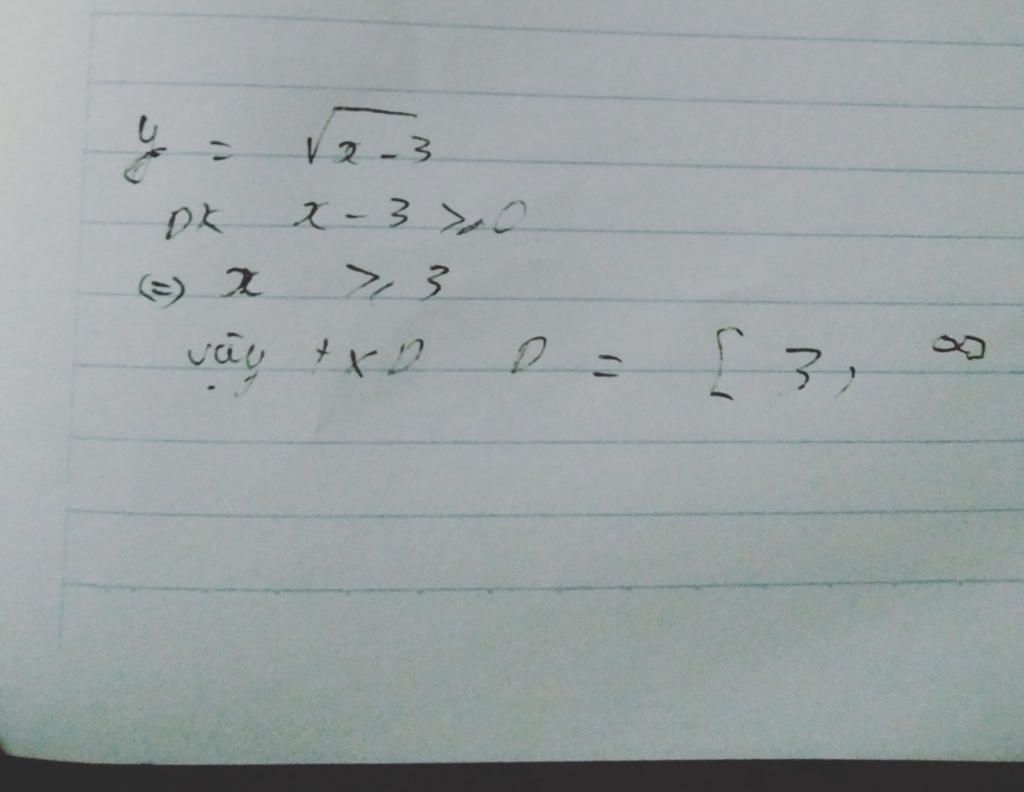 y = √x-3
ĐK x - 3 ⩾ 0
(=) x ⩾ 3
vậy txD D = [ 3, ∞